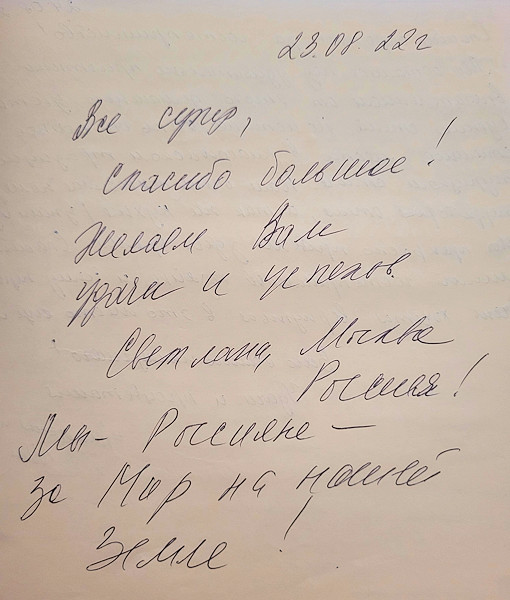 23.08.22г
Все супер,
спасибо большое!
Желаем Вам
удачи и успехов.
Светлана, Москва
Россия!
Мы - Россияне -
за Мир на нашей
Земле!